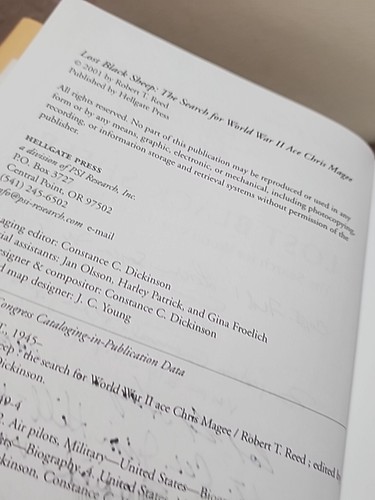 Lost Black Sheep: The Search for World War II Ace Chris Magee
© 2001 by Robert T. Reed
Published by Hellgate Press
All rights reserved. No part of this publication may be reproduced or used in any
form or by any means, graphic, electronic, or mechanical, including photocopying,
recording, or information storage and retrieval systems without permission of the
publisher.
HELLGATE PRESS
a division of PSI Research, Inc.
P.O. Box 3727
Central Point, OR 97502
(541) 245-6502
nfo@psi-research.com e-mail
aging editor: Constance C. Dickinson
ial assistants: Jan Olson, Harley Patrick, and Gina Froelich
esigner & compositor: Constance C. Dickinson
d map designer: J. C. Young
Congress Cataloging-in-Publication Data
T., 1945–
eep : the search for World War II ace Chris Magee / Robert T. Reed ; edited b
Dickinson.
2. Air pilots, Military—United States—Biog
—Biography. 4. United States
kinson, Constance